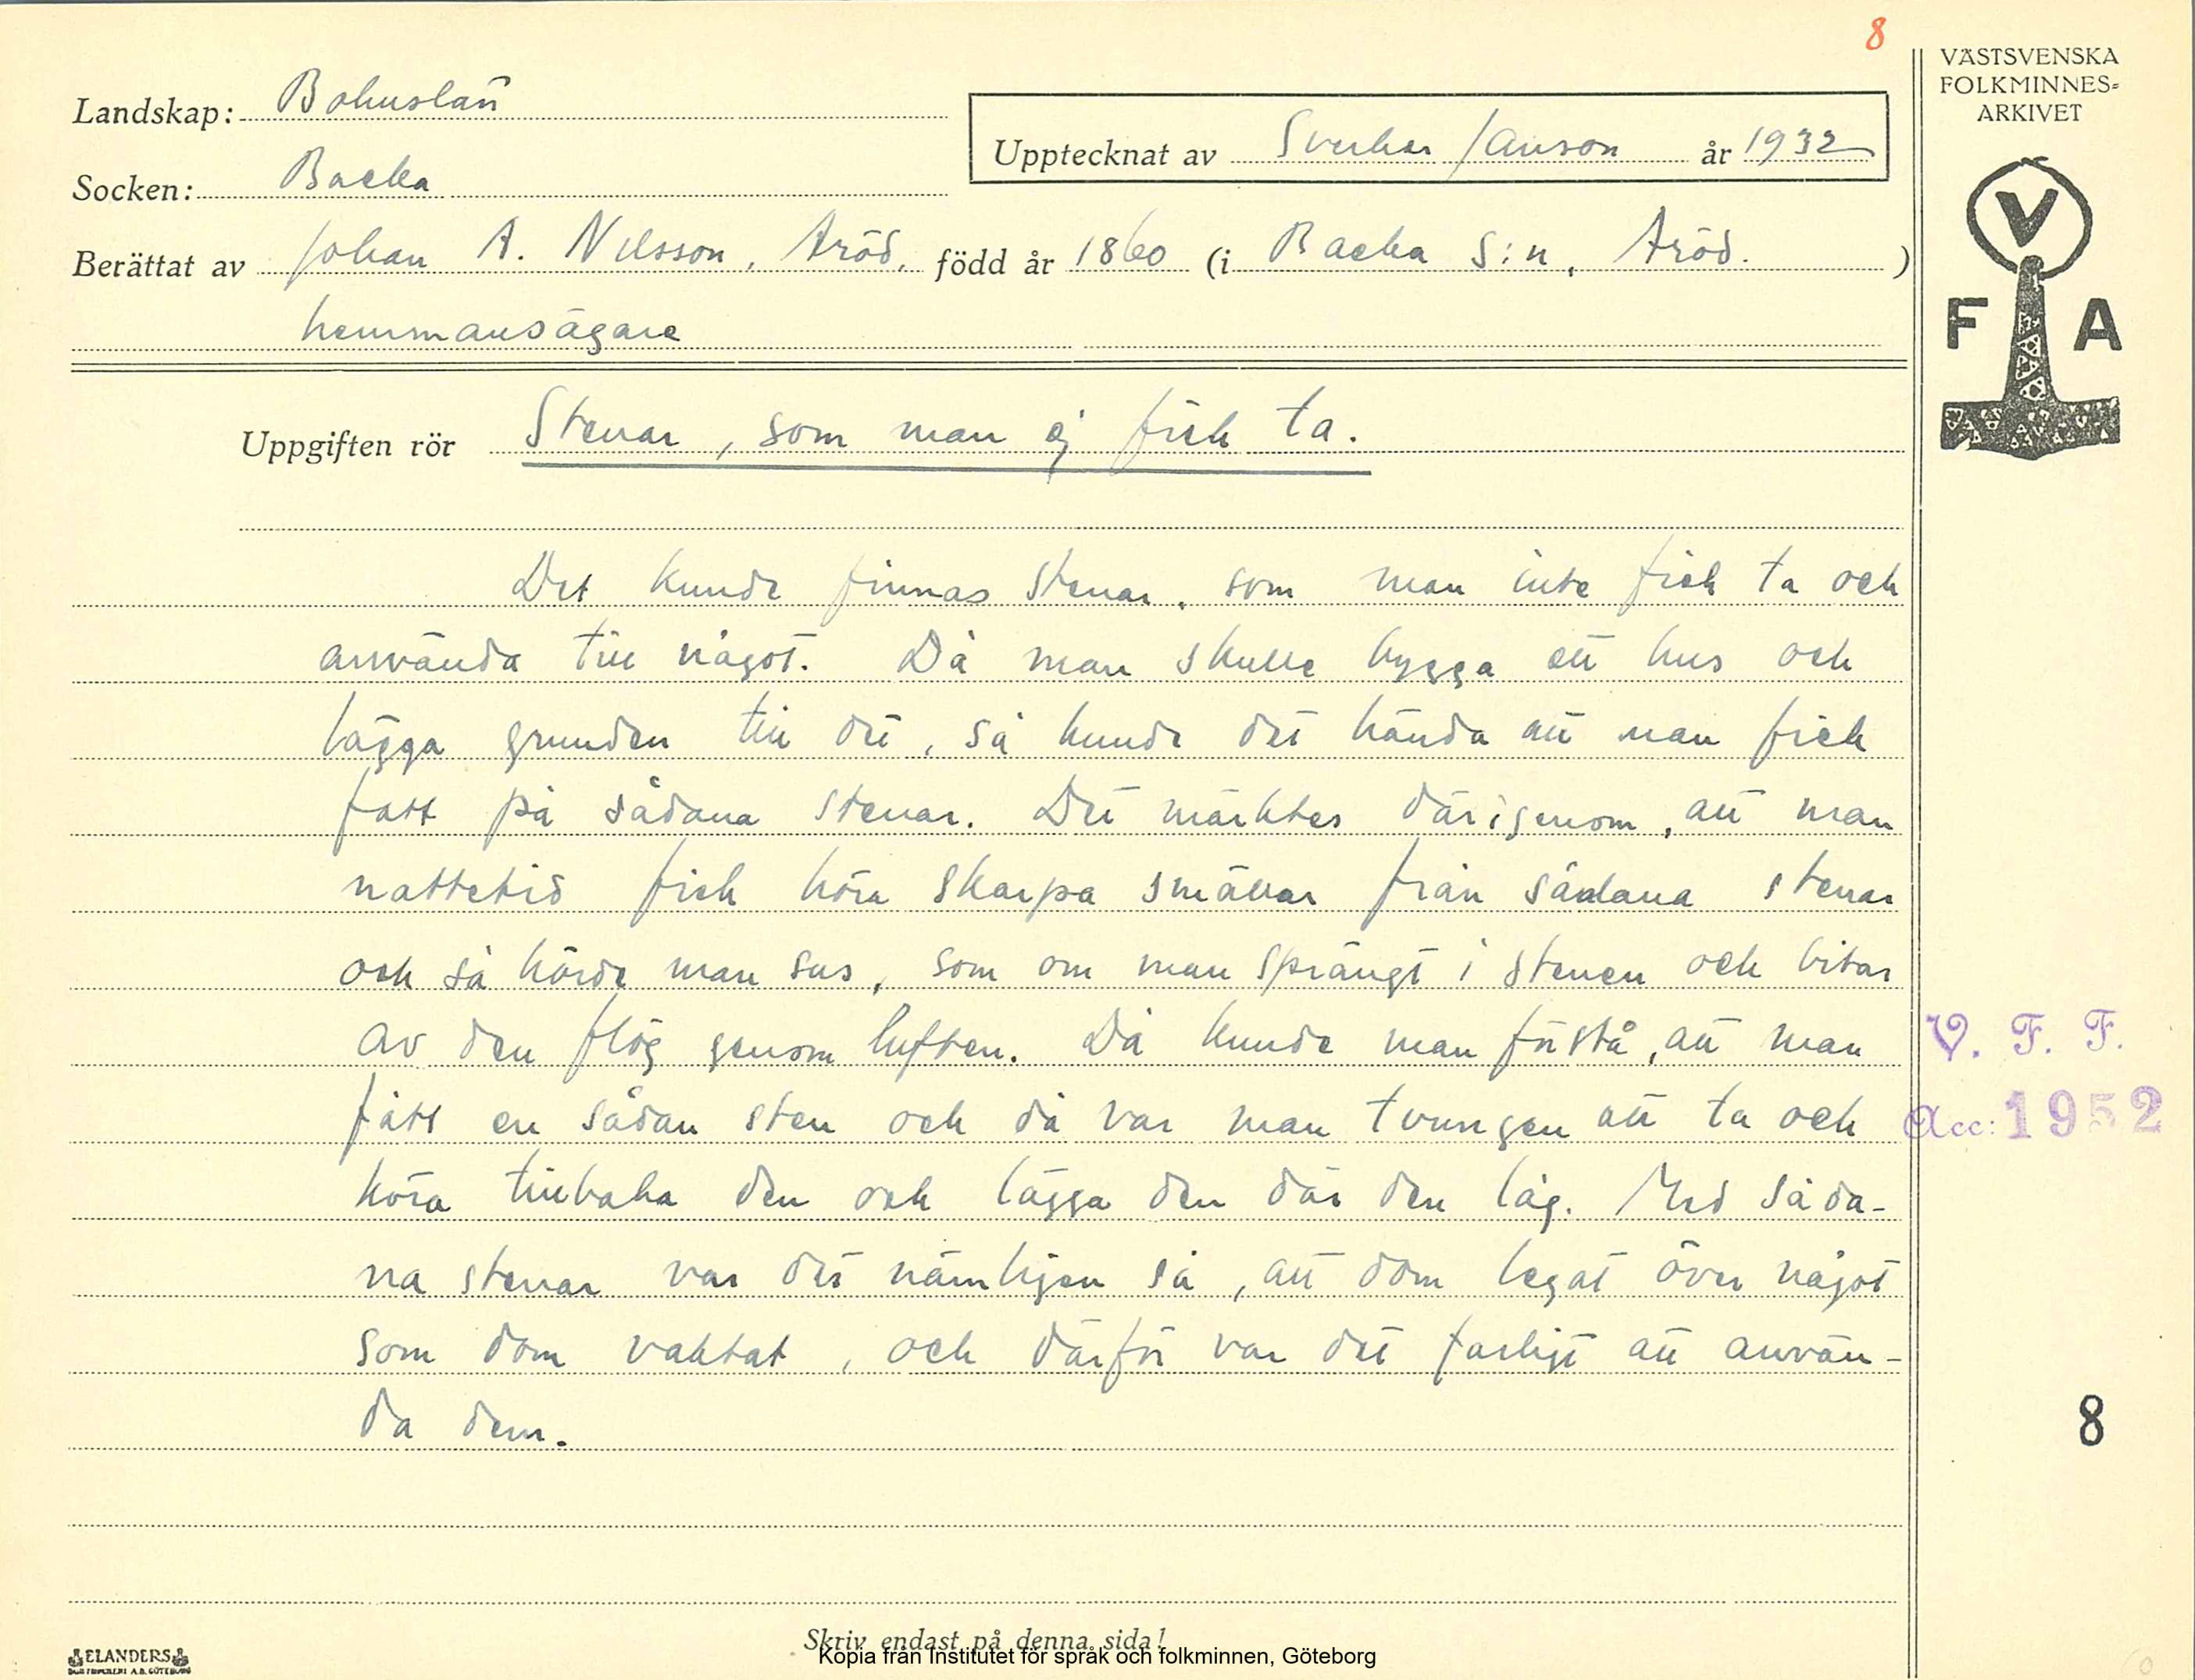 8
VÄSTSVENSKA
FOLKMINNES-
ARKIVET
V
F A
Landskap: Bohuslän
Socken: Backa
Upptecknat av Sverker Janson år 1932
Berättat av Johan A. Nilsson, Aröd, född år 1860 (i Backa S:n, Aröd. )
hemmansägare
Uppgiften rör Stenar, som man ej fick ta.
Det kunde finnas stenar, som man inte fick ta och
använda till något. Då man skulle bygga ett hus och
lägga grunden till det, så kunde det hända att man fick
fatt på sådana stenar. Det märktes därigenom, att man
nattetid fick höra skarpa smällar från sådana stenar
och så hörde man sus, som om man sprängt i stenen och bitar
av den flög genom luften. Då kunde man förstå, att man
fått en sådan sten och då var man tvungen att ta och
köra tillbaka den och lägga den där den låg. Med såda-
na stenar var det nämligen så, att dom legat över något
som dom vaktat, och därför var det farligt att använ-
da dem.
V. F. F.
Acc: 1952
8
Skriv endast på denna sida!
Kopia från Institutet för språk och folkminnen, Göteborg
ELANDERS
BOKTRYCKERI A.B. GÖTEBORG